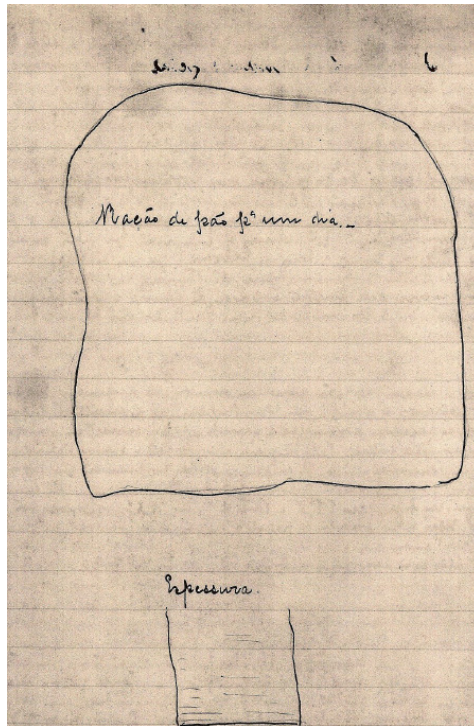 Ração de pão pª um dia._
Espessura.